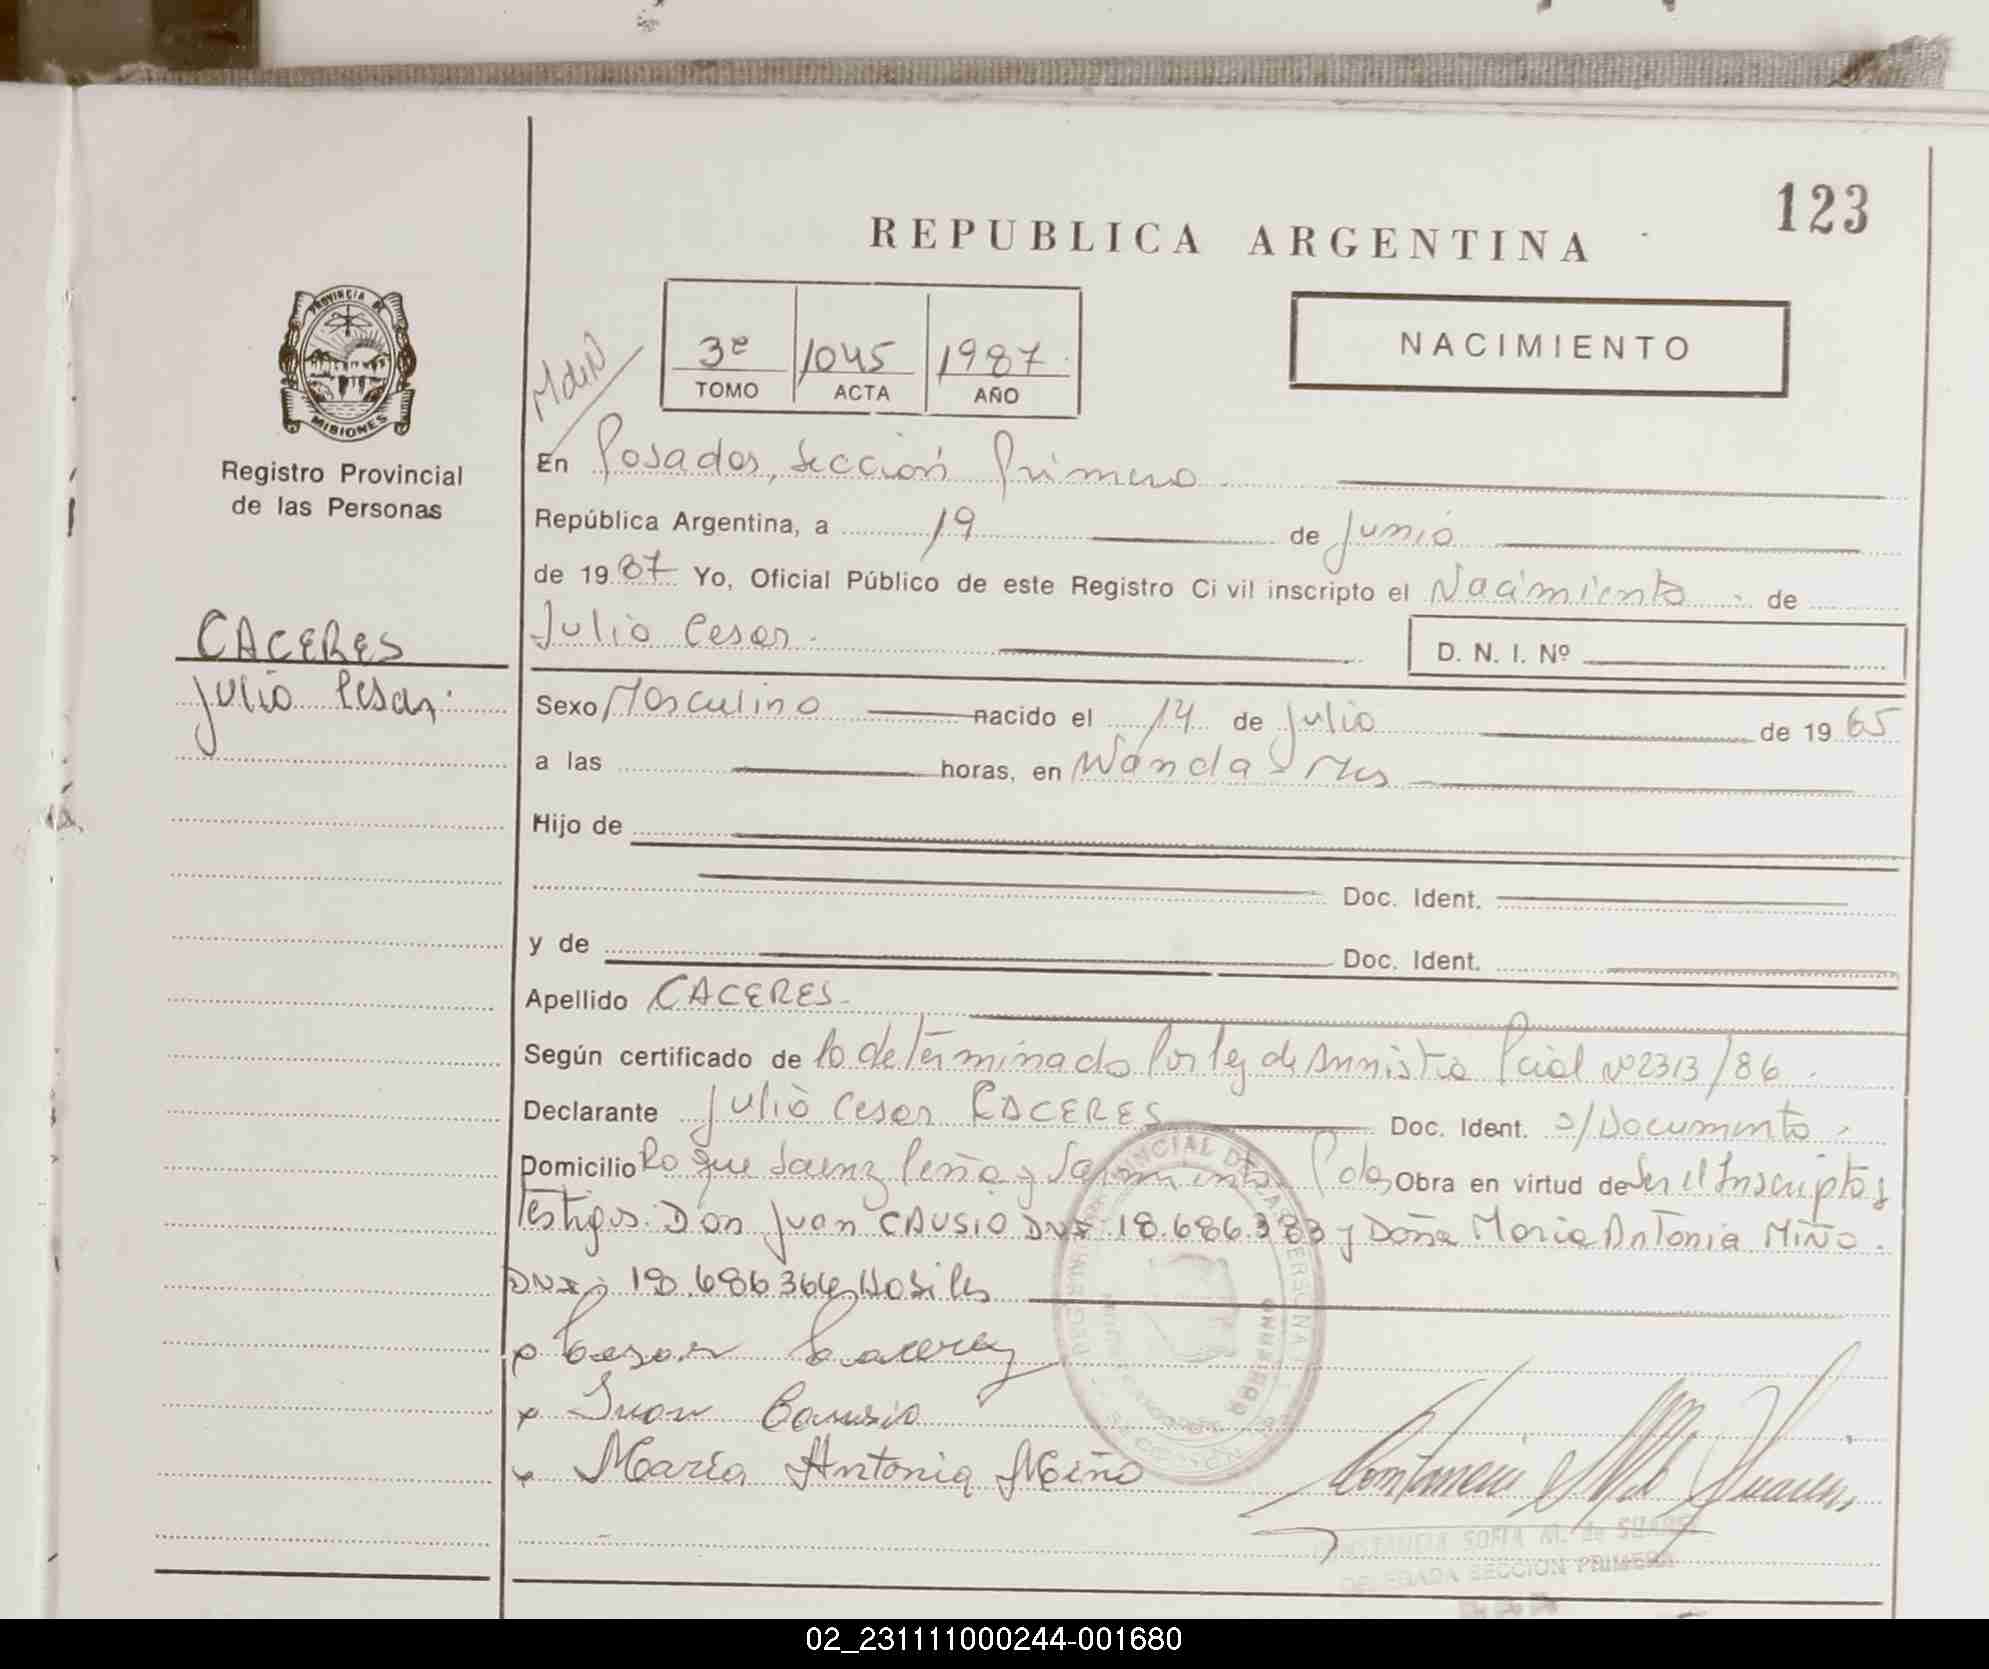 123
REPUBLICA ARGENTINA
PROVINCIA DE
MISIONES
3e 1045 1987
TOMO ACTA AÑO
NACIMIENTO
Registro Provincial
de las Personas
En Posadas, Sección Primera
República Argentina, a 19 de Junio
de 1987 Yo, Oficial Público de este Registro Civil inscripto el Nacimiento de
CACERES
Julio Cesar.
Julio Cesar.
D. N. I. Nº
Sexo Masculino nacido el 14 de Julio de 1965
a las horas, en Wanda - Mes
Hijo de
Doc. Ident.
y de Doc. Ident.
Apellido CACERES
Según certificado de lo determinado Por ley de Amnistia Pcial Nº 2313/86.
Declarante Julio Cesar CACERES Doc. Ident. s/Documento
Domicilio Roque Saenz Peña y Sarmiento Pdas Obra en virtud de Ser el Inscripto y
Testigos. Don Juan CAUSIO DNI: 18.686.383 y Doña Maria Antonia MIÑO.
DNI: 18.686364 Habiles
Cesar Caceres
Juan Causio
María Antonia Miño
CONSTANCIA SOFIA M. de SUAREZ
DELEGADA SECCION PRIMERA
02_231111000244-001680